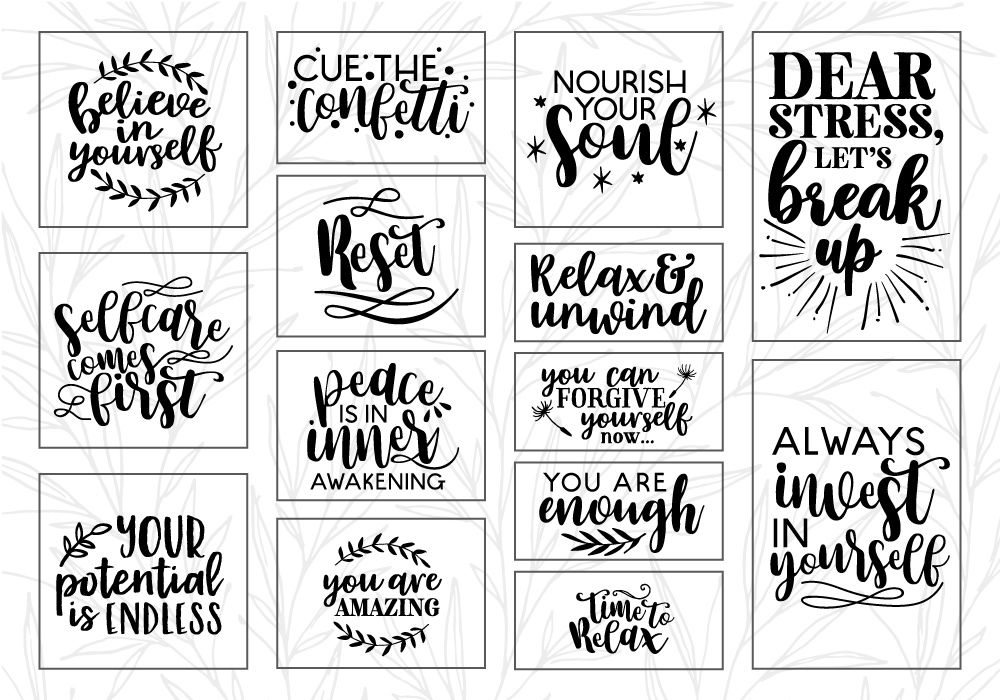 believe
in
yourself
selfcare
comes
first
YOUR
potential
is ENDLESS
CUE THE
confetti
Reset
peace
IS IN
inner
AWAKENING
you are
AMAZING
NOURISH
YOUR
Soul
Relax &
unwind
you can
FORGIVE
yourself
now...
YOU ARE
enough
Time to
Relax
DEAR
STRESS,
LET'S
break
up
ALWAYS
invest
IN
yourself